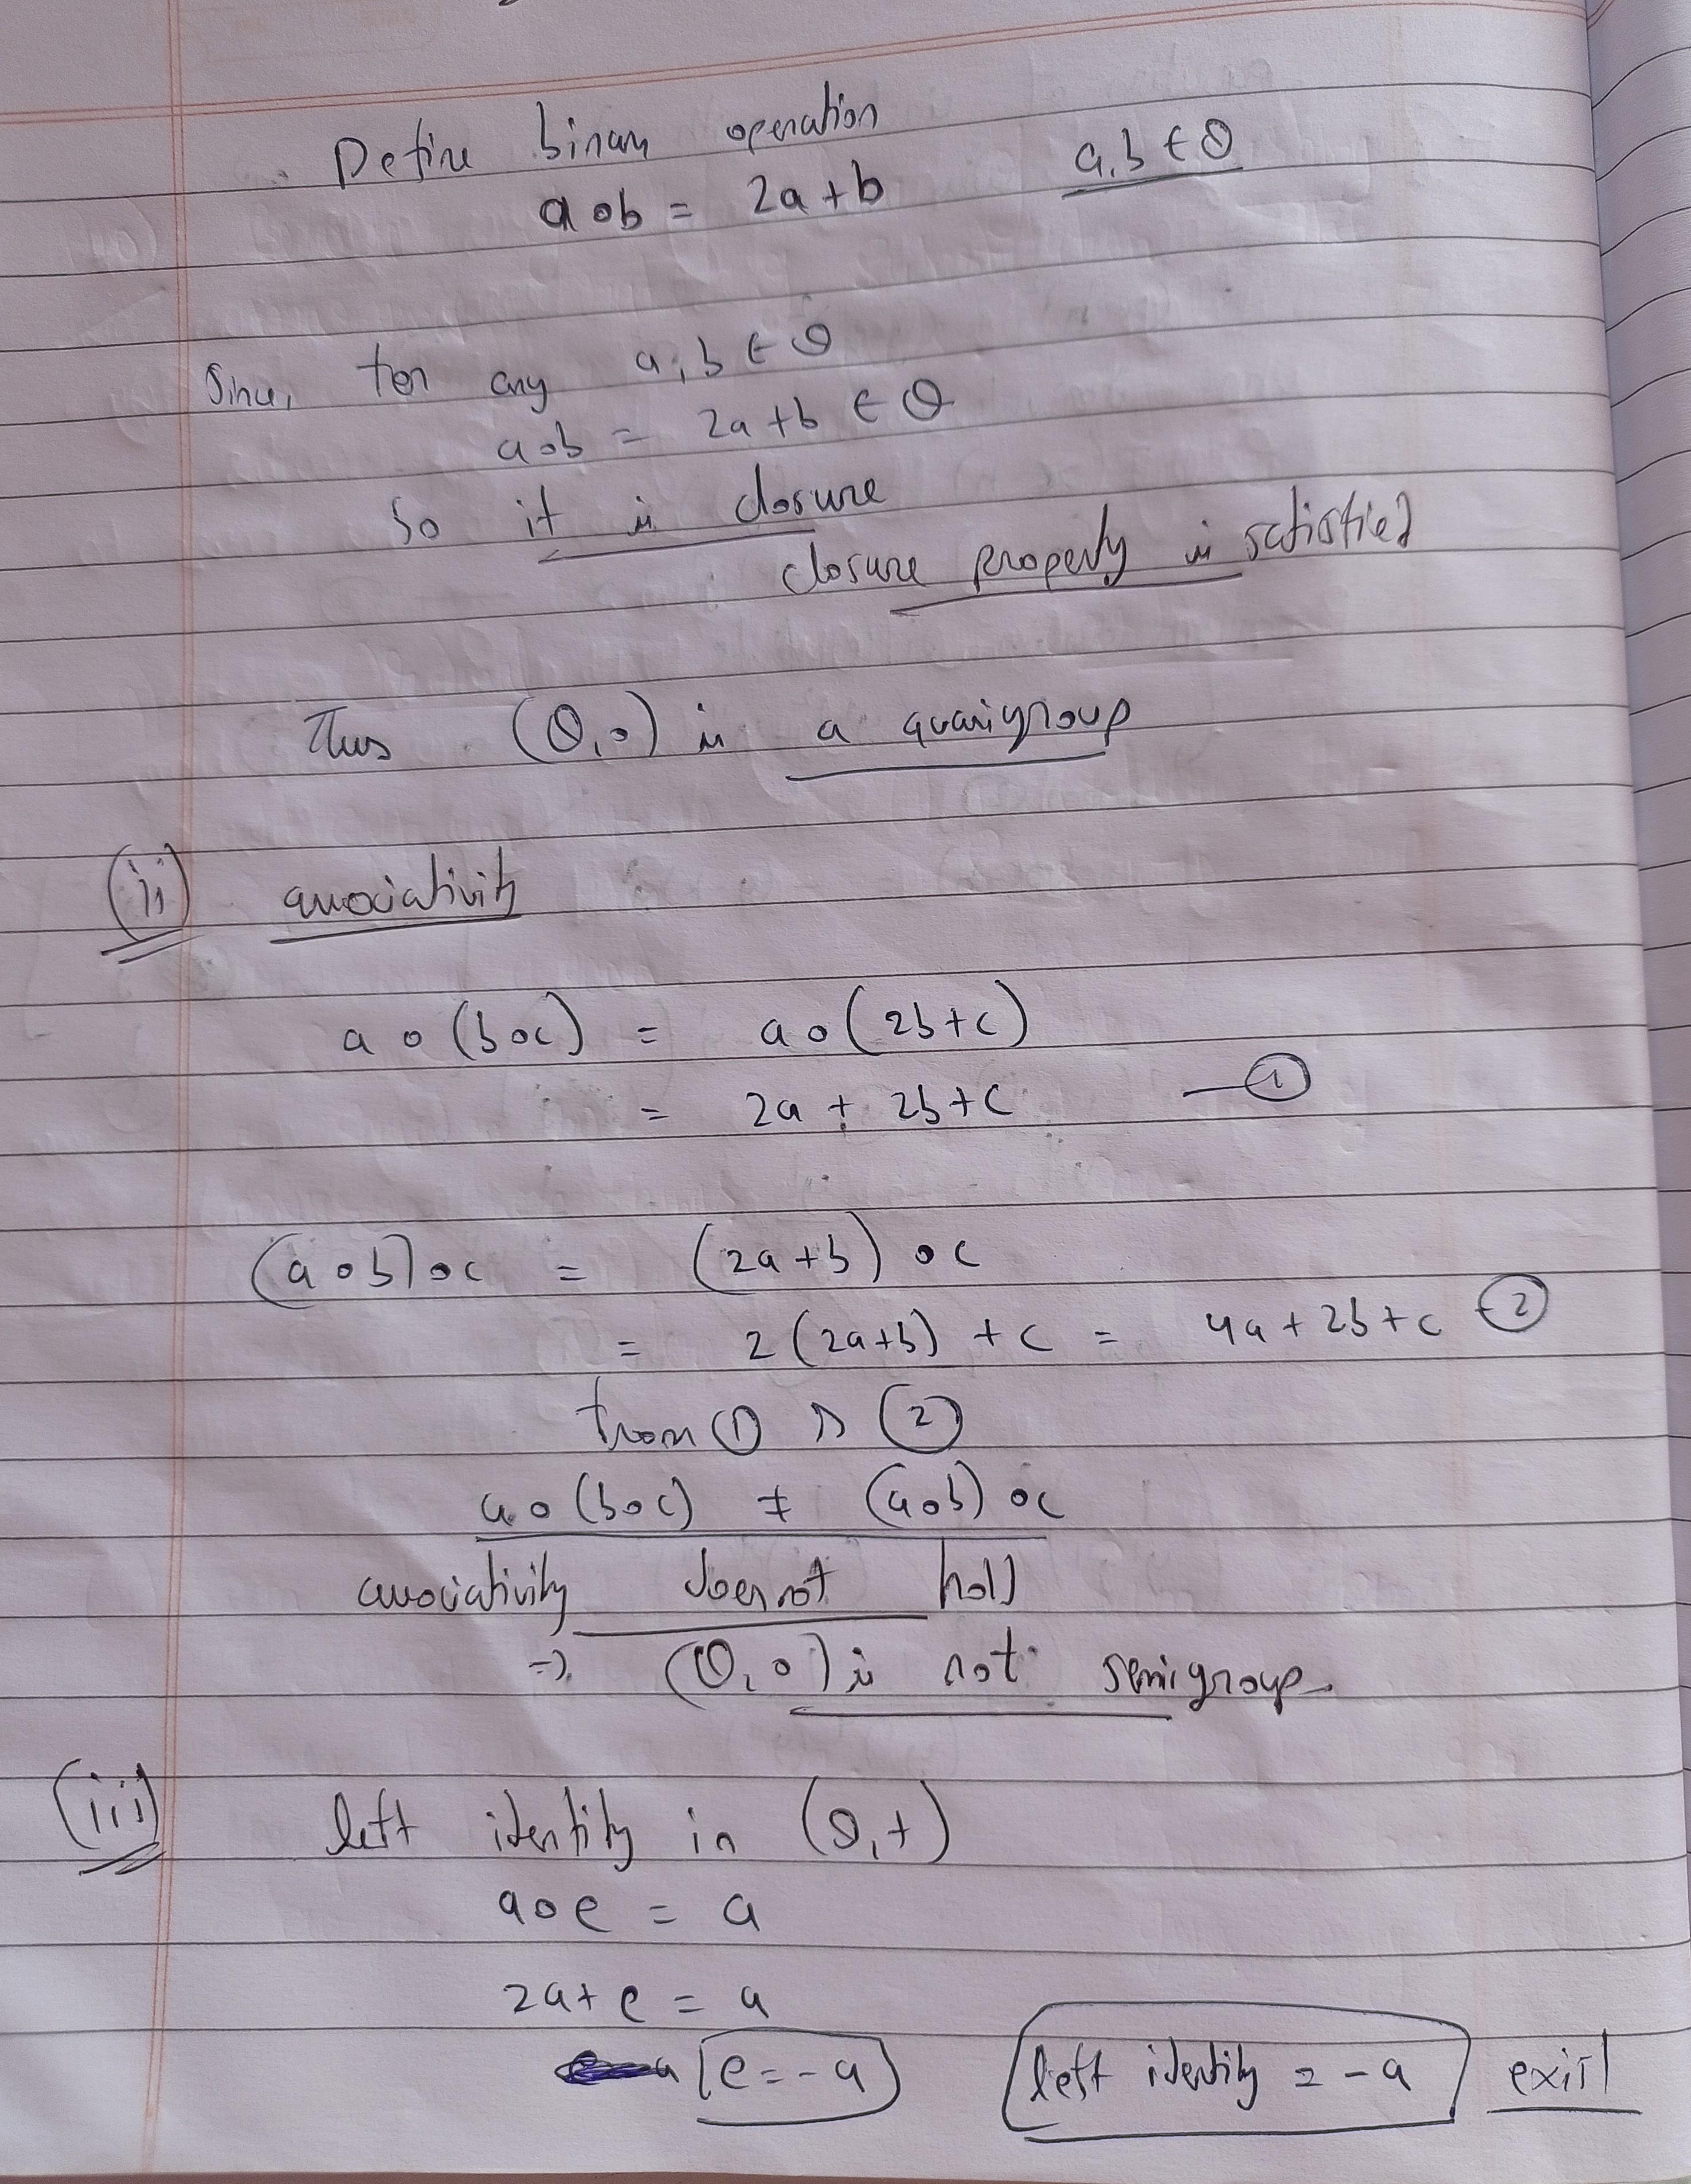 Define binary operation
a∘b = 2a+b a,b ∈ Q
Since, for any a,b ∈ Q
a∘b = 2a+b ∈ Q
So it is closure
closure property is satisfied
Thus (Q,∘) is a quasigroup
(ii) associativity
a∘(b∘c) = a∘(2b+c)
= 2a + 2b+c —①
(a∘b)∘c = (2a+b)∘c
= 2(2a+b)+c = 4a+2b+c —②
from ① & ②
a∘(b∘c) ≠ (a∘b)∘c
associativity does not hold
⇒ (Q,∘) is not semigroup.
(iii) left identity in (Q,+)
a∘e = a
2a+e = a
e=-a left identity = -a exist